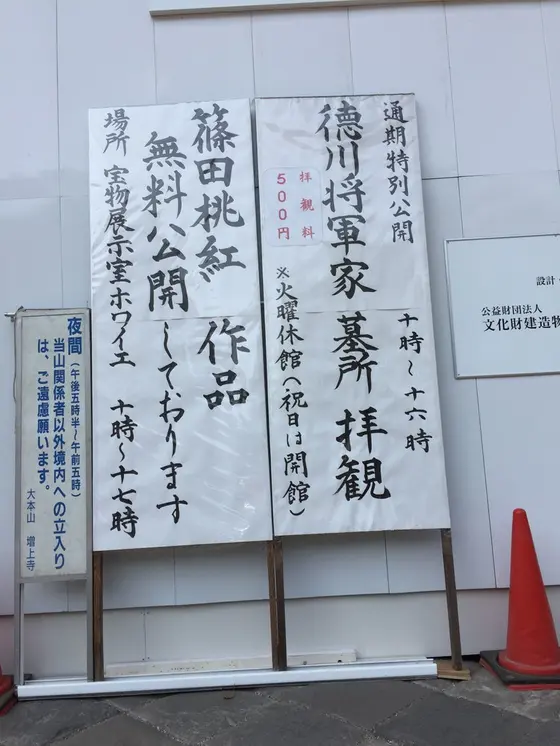 通期特別公開
十時～十六時
徳川将軍家 墓所 拝観
拝観料
500円
※火曜休館(祝日は開館)
篠田桃紅 作品
無料公開しております
場所 宝物展示室ホワイエ 十時～十七時
夜間(午後五時半～午前五時)
当山関係者以外境内への立入り
は、ご遠慮願います。
大本山 増上寺
設計・
公益財団法人
文化財建造物